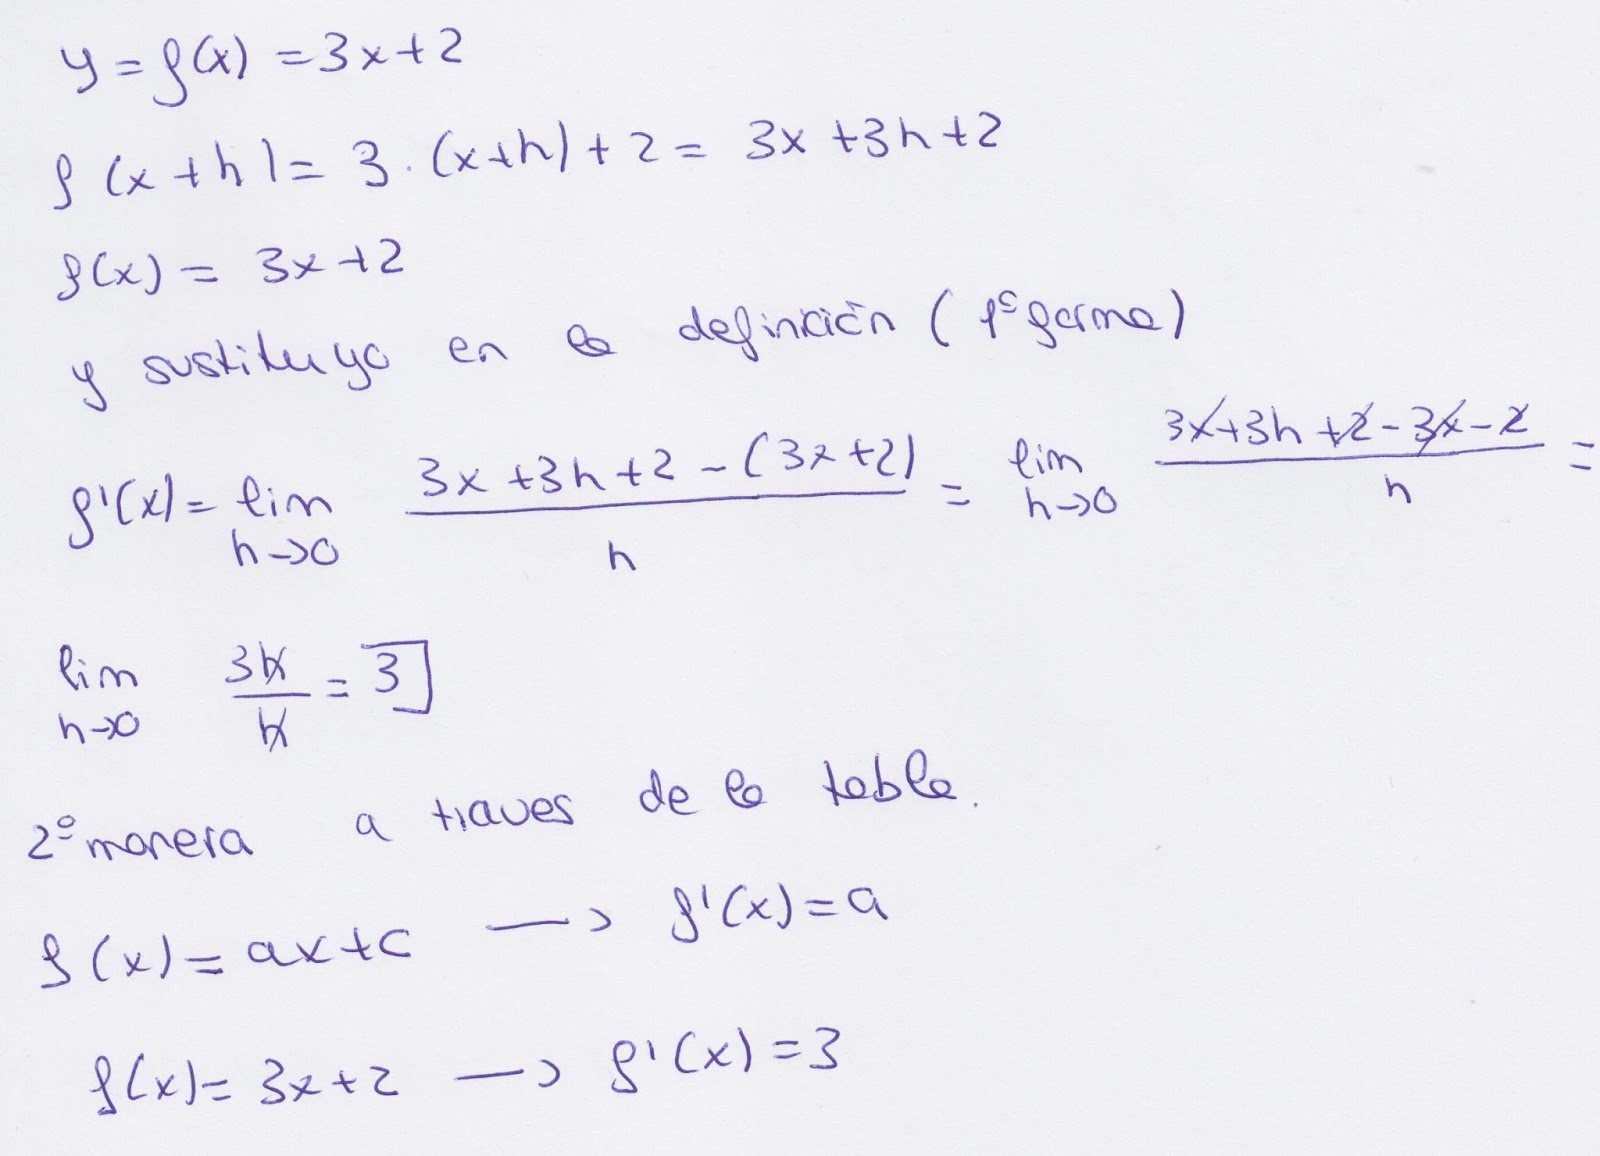 y = f(x) = 3x+2
f(x+h) = 3·(x+h)+2 = 3x+3h+2
f(x) = 3x+2
y sustituyo en la definición (1º forma)
f'(x) = lim h→0 (3x+3h+2-(3x+2))/h = lim h→0 (3x+3h+2-3x-2)/h =
lim h→0 3h/h = 3
2º manera a traves de la tabla.
f(x) = ax+c → f'(x) = a
f(x) = 3x+2 → f'(x) = 3